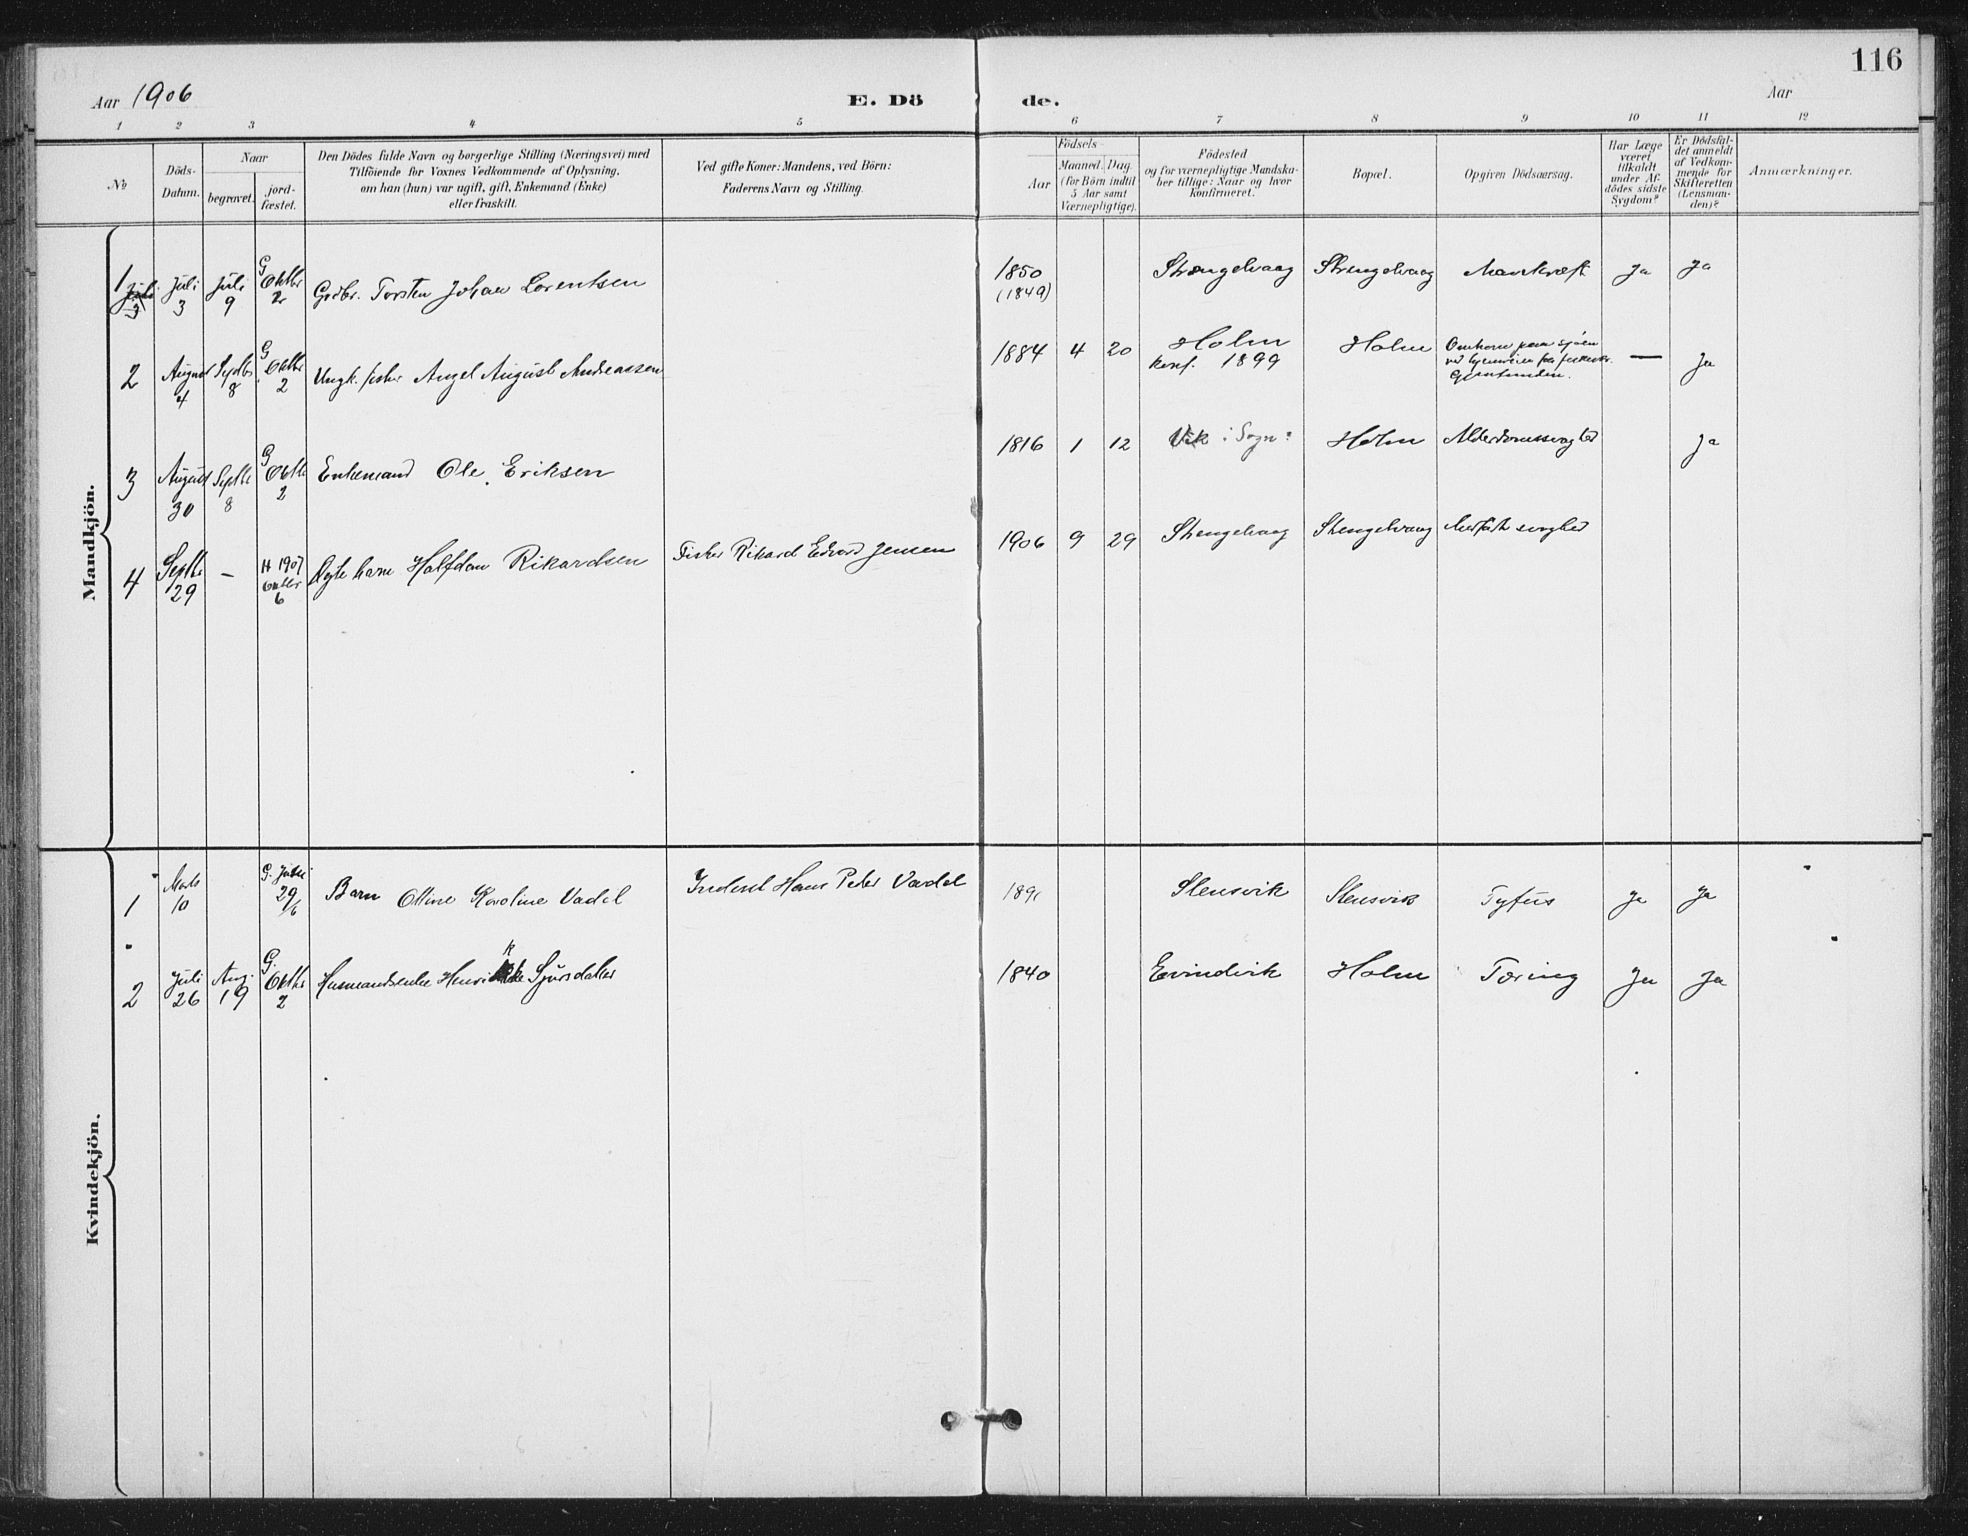 116
Aar 1906
E. Dö de.
Aar
1 2 3 4 5 6 7 8 9 10 11 12
No
Döds-
Datum.
Naar
begravet.
jord-
fæstet.
Den Dödes fulde Navn og borgerlige Stilling (Næringsvei) med
Tilföiende for Voxnes Vedkommende af Oplysning,
om han (hun) var ugift, gift, Enkemand (Enke)
eller fraskilt.
Ved gifte Koner: Mandens, ved Börn:
Faderens Navn og Stilling.
Födsels-
Aar
Maaned. Dag.
(for Börn indtil
5 Aar samt
Værnepligtige).
Födested
og for værnepligtige Mandska-
ber tillige: Naar og hvor
konfirmeret.
Bopæl.
Opgiven Dödsaarsag.
Har Læge
været
tilkaldt
under Af-
dödes sidste
Sygdom?
Er Dödsfal-
det anmeldt
af Vedkom-
mende for
Skifteretten
(Lensman-
den)?
Anmærkninger.
Mandkjön.
1 Juli 3 Juli 9 G Oktbr 2 Grdbr. Torsten Johan Lorentsen 1850 (1849) Strengelvaag Strengelvaag Mavekræft Ja Ja
2 August 4 Septbr 8 G Oktbr 2 Ungk. fisker Angel August Andreassen 1884 4 20 Holm konf. 1899 Holm Omkom paa sjöen
ved hjemreise fra
— Ja
3 August 30 Septbr 8 G Oktbr 2 Enkemand Ole Eriksen 1816 1 12 Vik i Sogn: Holm Alderdomssvaghed Ja
4 Septbr 29 — H 1907 Oktbr 6 Ægte barn Halfdan Rikardsen Fisker Rikard Edvard Jensen 1906 9 29 Strengelvaag Strengelvaag Medfödt svaghed
Kvindekjön.
1 Marts 10 G. 29/6 Barn Oline Karoline Vadel Inderst Hans Peter Vadel 1891 Stensvik Stensvik Tyfus Ja Ja
2 Juli 26 Aug. 19 G. Oktbr 2 Husmandsenke Henrikke Sjursdatter 1840 Evindvik Holm Tæring Ja Ja